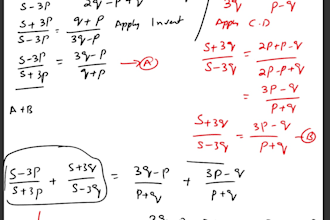 S-3P 2q-P+q
S+3P / S-3P = q+P / 3q-P Apply Invert
S-3P / S+3P = 3q-P / q+P → A
A+B
3q P-q
Apply C.D
S+3q / S-3q = 2P+P-q / 2P-P+q
= 3P-q / P+q
S+3q / S-3q = 3P-q / P+q → B
S-3P / S+3P + S+3q / S-3q = 3q-P / P+q + 3P-q / P+q